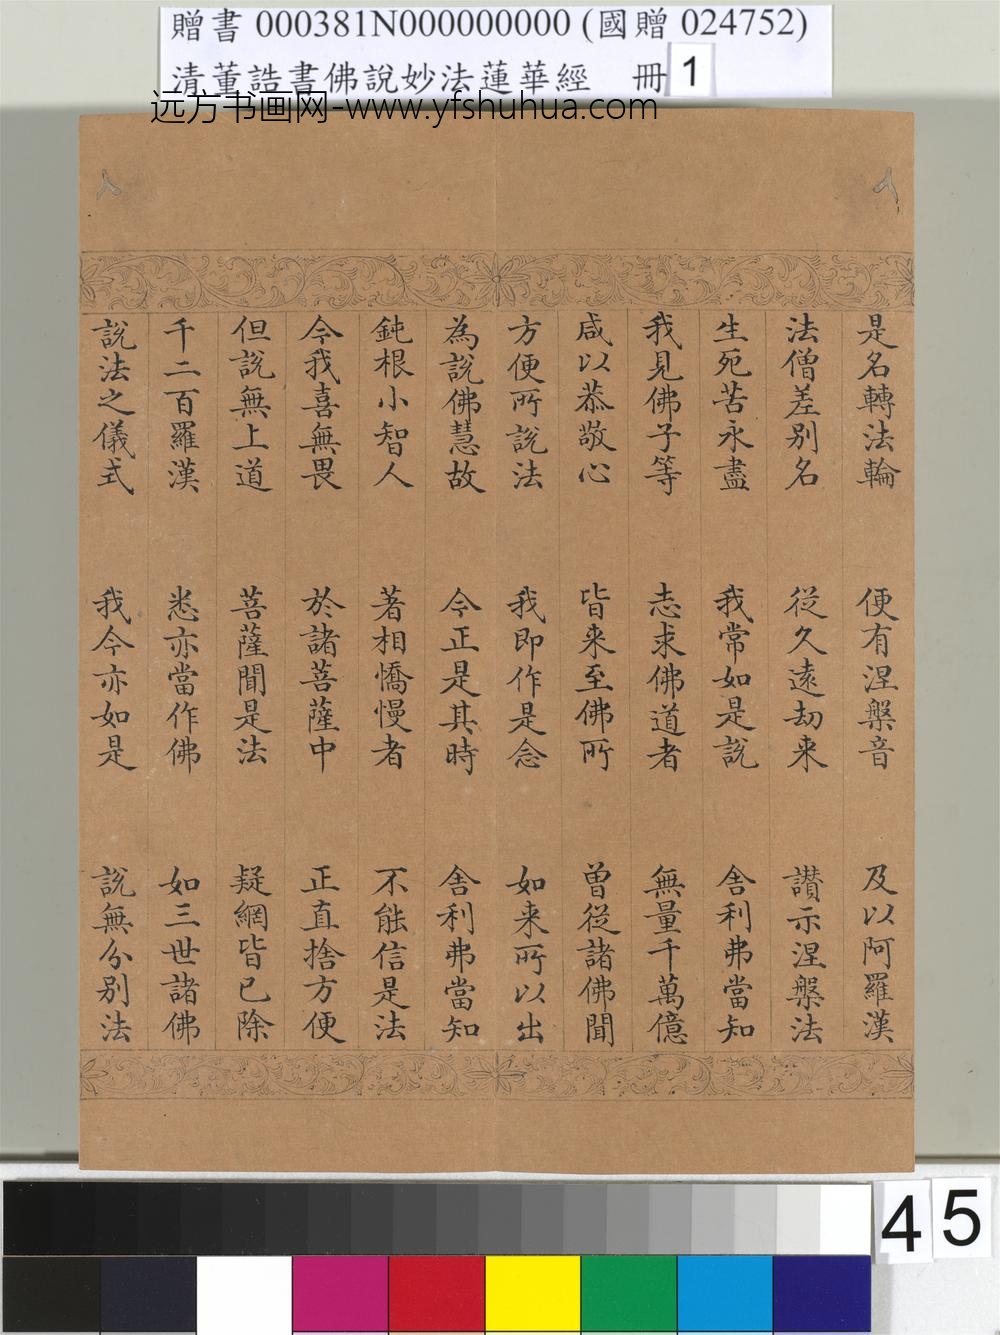 贈書 000381N000000000 (國贈 024752)
清董誥書佛說妙法蓮華經 冊 1
远方书画网-www.yfshuhua.com
是名轉法輪 便有涅槃音 及以阿羅漢
法僧差別名 從久遠劫来 讃示涅槃法
生死苦永盡 我常如是說 舍利弗當知
我見佛子等 志求佛道者 無量千萬億
咸以恭敬心 皆来至佛所 曽從諸佛聞
方便所說法 我即作是念 如来所以出
為說佛慧故 今正是其時 舍利弗當知
鈍根小智人 著相憍慢者 不能信是法
今我喜無畏 於諸菩薩中 正直捨方便
但說無上道 菩薩聞是法 疑網皆已除
千二百羅漢 悉亦當作佛 如三世諸佛
說法之儀式 我今亦如是 說無分別法
45